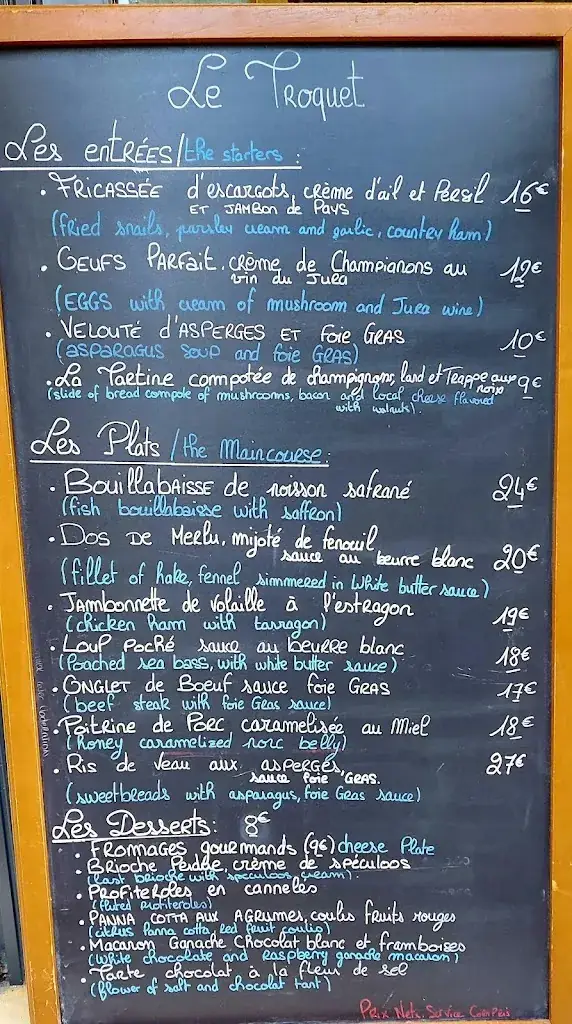 Le Troquet
Les entRÉES/the starters :
. FRICASSÉE d'escargots, crème d'ail et Persil 16€
ET JAMBon de PAYS
(fried snails, parsley cream and garlic, country ham)
. OEUFS PARFait, crème de Champignons au 12€
vin du JuRA
(EGGS with cream of mushroom and Jura wine)
. VELOUTÉ d'ASPERGES ET foie GRAS 10€
(asparagus soup and foie GRAS)
. La Tartine compotée de champignons, lard et Trappe aux 9€
noix
(slide of bread compote of mushrooms, bacon and local cheese flavored
with walnuts).
Les Plats / the Maincourse:
. BouillaBAISSE de poisson safrané 24€
(fish bouillabaisse with saffron)
. Dos DE MeRLu, mijoté de fenouil, 20€
sauce au beurre blanc
(fillet of hake, fennel simmered in White butter sauce)
. JAMBONNette de volaille à l'estragon 19€
(chicken ham with tarragon)
. Loup Poché sauce au beurre blanc 18€
(Poached sea bass, with white butter sauce)
. ONGLET de Boeuf sauce foie GRAS 17€
(beef steak with foie Gras sauce)
. Poitrine de PoRC caramelisée au Miel 18€
(honey caramelized porc belly)
. Ris de Veau aux aspeRGES, 27€
sauce foie GRAS.
(sweetbreads with asparagus, foie Gras sauce)
Les Desserts: 8€
. FRomAGES gourmands (9€) cheese Plate
. BRioche Perdue, crème de spéculoos
(Last brioche with speculoos cream).
. PRofiteRoles en cannelés
(fluted profiteroles)
. PANNA COTTA AUX AGRumes, coulis fruits rouges
(citrus Panna cotta, red fruit coulis)
. Macaron Ganache Chocolat blanc et framboises
(White chocolate and raspberry ganache macaron)
. Tarte chocolat à la fleur de sel
(flower of salt and chocolat tart)
PRix Nets. Service Compris